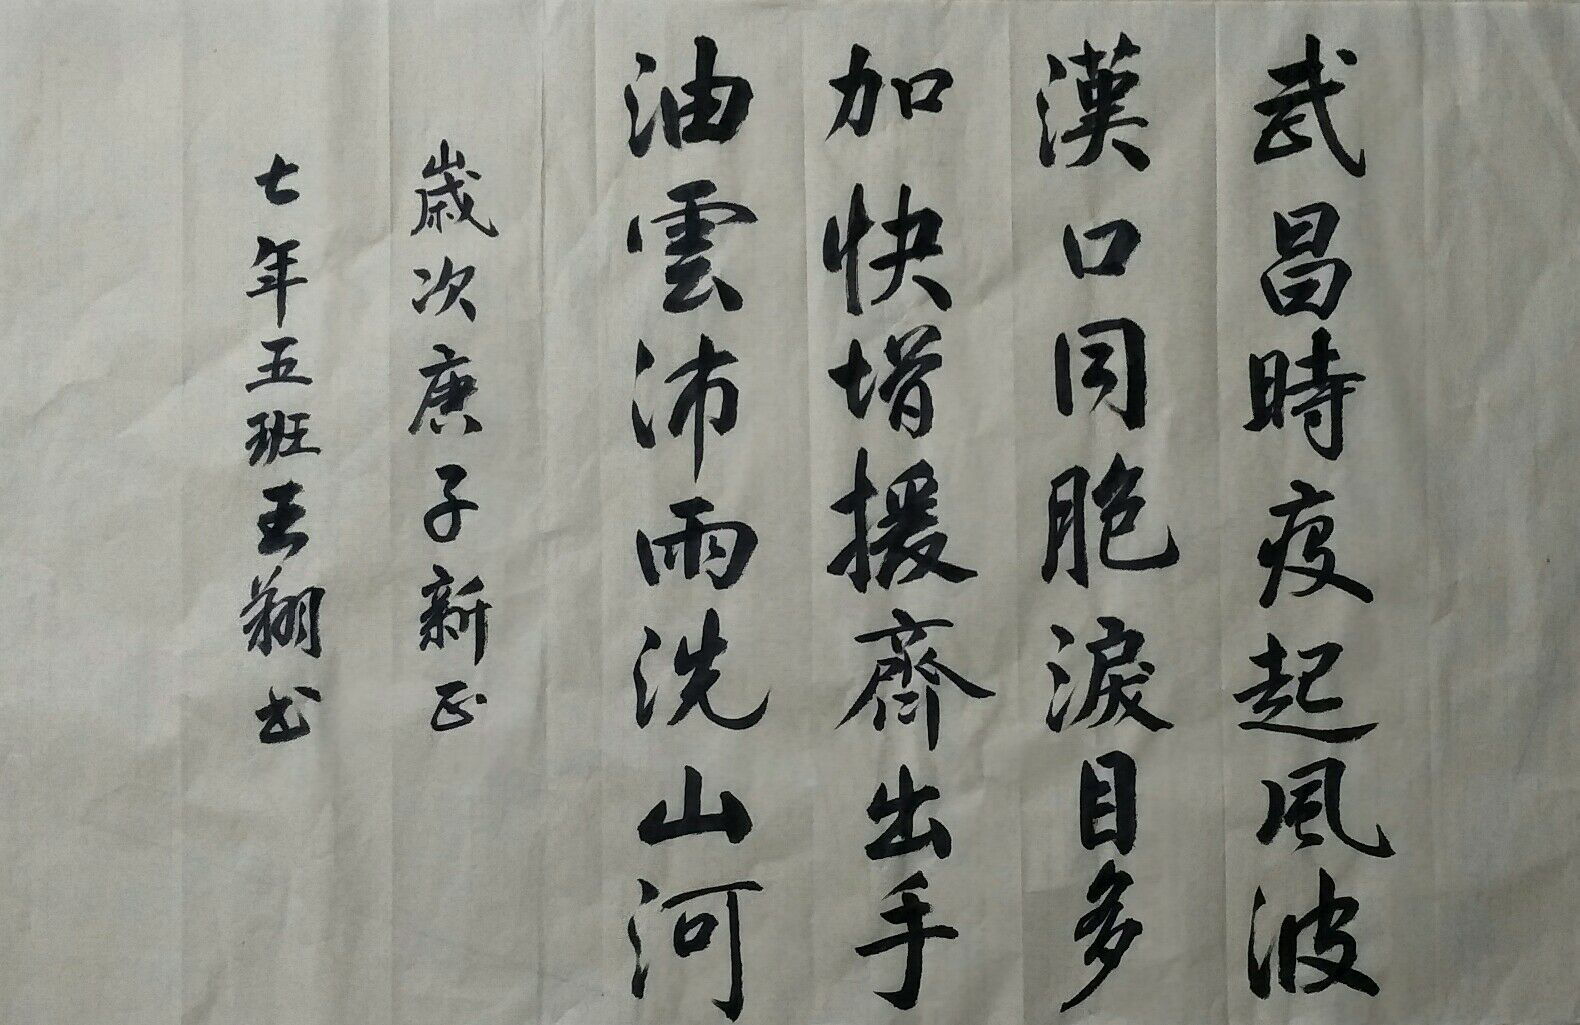 武昌時疫起風波
漢口同胞淚目多
加快增援齊出手
油雲沛雨洗山河
歲次庚子新正
七年五班王翔书